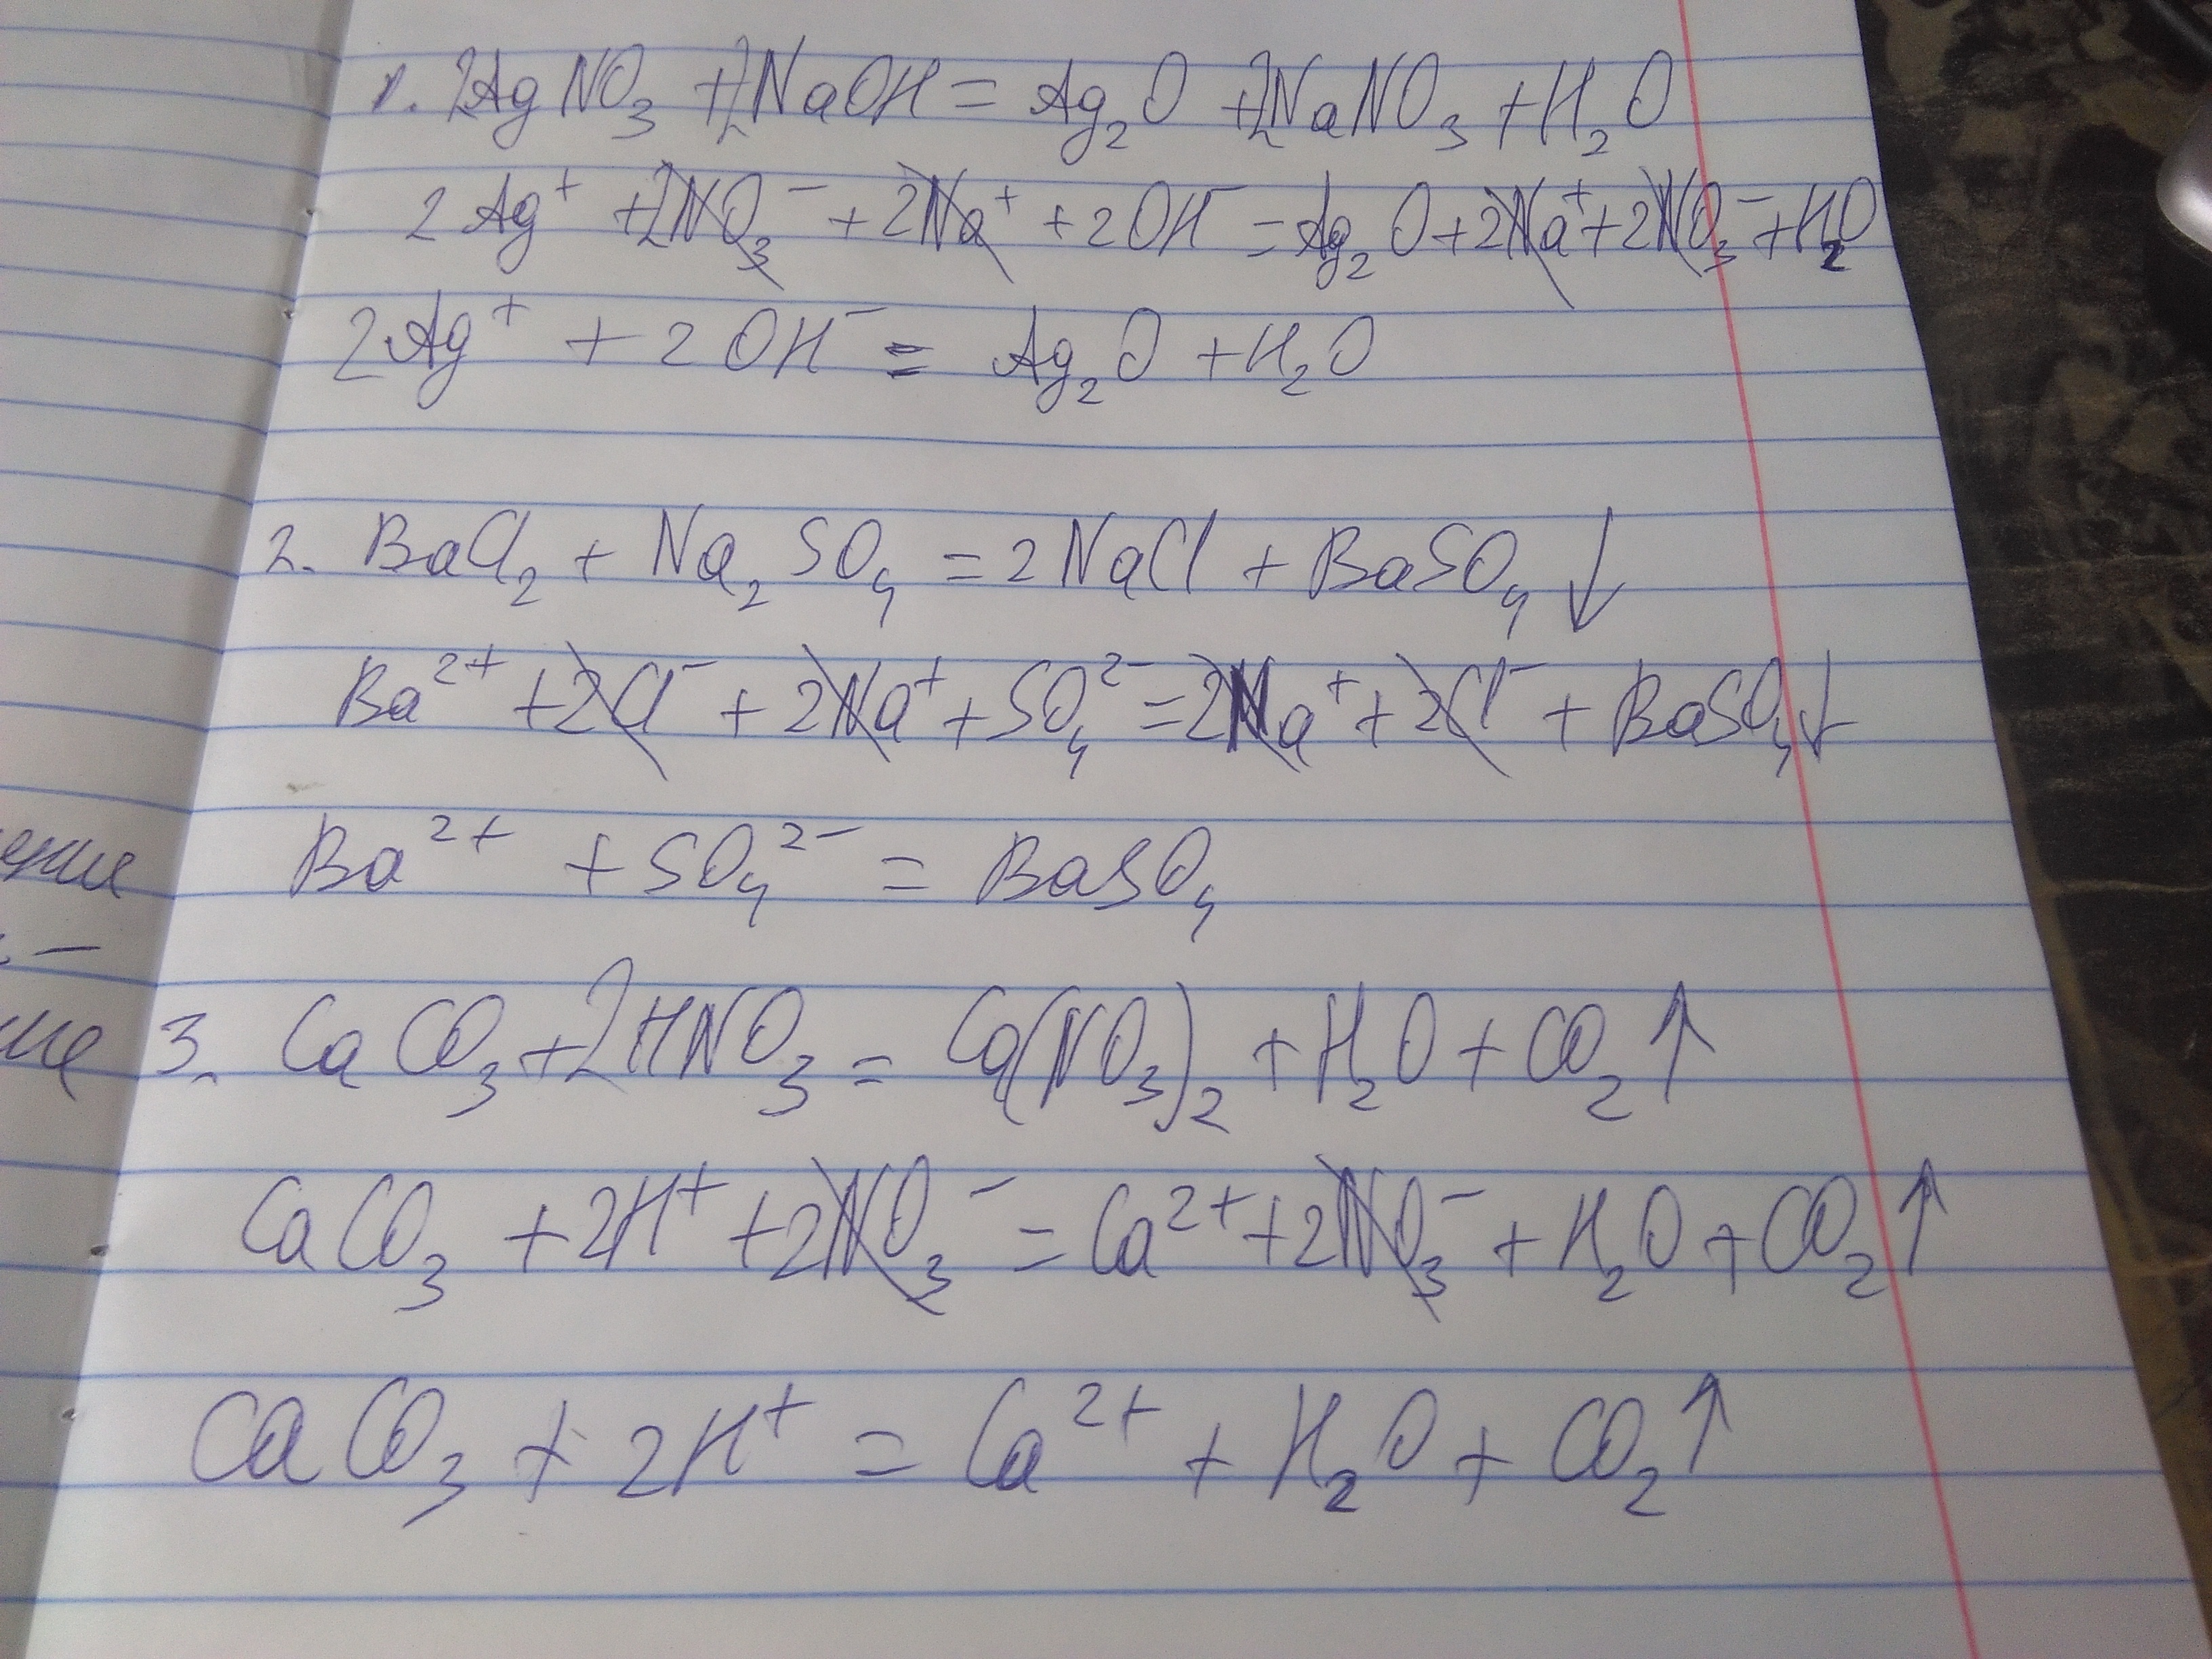 1. 2AgNO₃ + 2NaOH = Ag₂O + 2NaNO₃ + H₂O
2Ag⁺ + 2NO₃⁻ + 2Na⁺ + 2OH⁻ = Ag₂O + 2Na⁺ + 2NO₃⁻ + H₂O
2Ag⁺ + 2OH⁻ = Ag₂O + H₂O
2. BaCl₂ + Na₂SO₄ = 2NaCl + BaSO₄↓
Ba²⁺ + 2Cl⁻ + 2Na⁺ + SO₄²⁻ = 2Na⁺ + 2Cl⁻ + BaSO₄↓
Ba²⁺ + SO₄²⁻ = BaSO₄
3. CaCO₃ + 2HNO₃ = Ca(NO₃)₂ + H₂O + CO₂↑
CaCO₃ + 2H⁺ + 2NO₃⁻ = Ca²⁺ + 2NO₃⁻ + H₂O + CO₂↑
CaCO₃ + 2H⁺ = Ca²⁺ + H₂O + CO₂↑